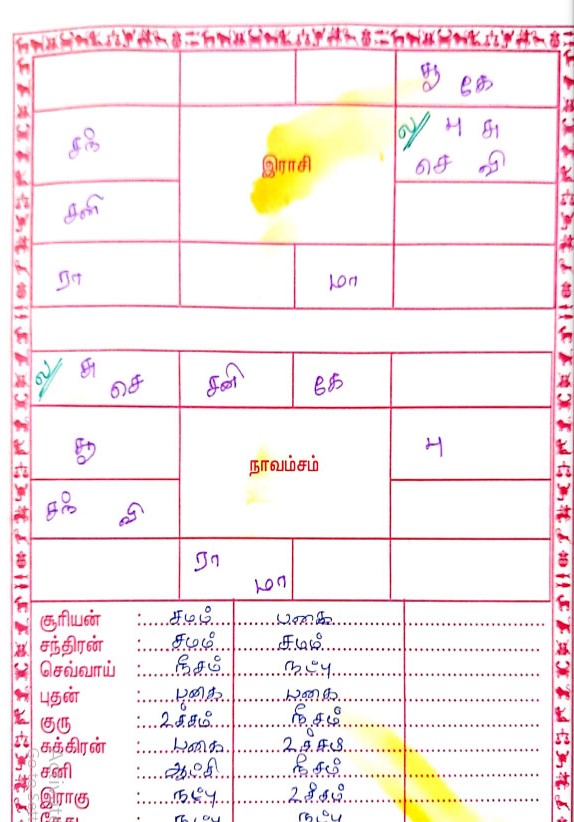 சூ கே
சந் ல பு சு
இராசி
செ வி
சனி
ரா மா
ல சு செ சனி கே
சூ நாவம்சம் பு
சந் வி
ரா மா
சூரியன் : சமம் பகை
சந்திரன் : சமம் சமம்
செவ்வாய் : நீசம் நட்பு
புதன் : பகை பகை
குரு : உச்சம் நீசம்
சுக்கிரன் : பகை உச்சம்
சனி : ஆட்சி நீசம்
இராகு : நட்பு உச்சம்
நட்பு நட்பு